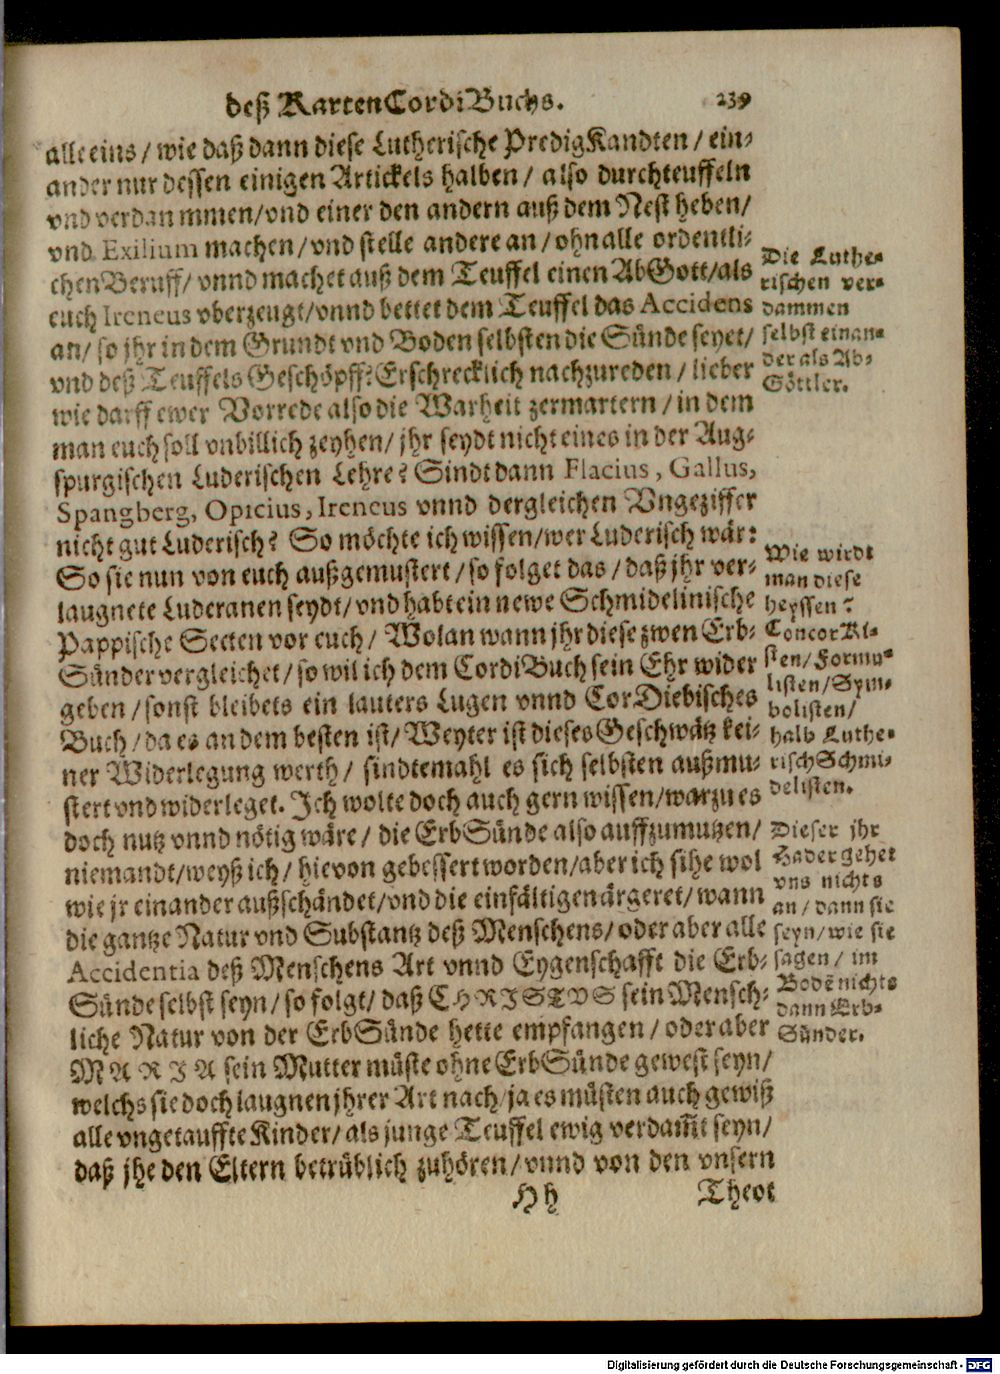 deß KartenCordiBuchs. 239
alle eins / wie daß dann diese Lutherische PredigKandten / ein-
ander nur dessen einigen Artickels halben / also durchteuffeln
vnd verdammmen/vnd einer den andern auß dem Nest heben/
vnd Exilium machen/vnd stelle andere an / ohn alle ordentli-
chen Beruff/ vnnd machet auß dem Teuffel einen AbGott/als
euch Ireneus vberzeugt/vnnd bettet dem Teuffel das Accidens
an/ so jhr in dem Grundt vnd Boden selbsten die Sünde seyet/
vnd deß Teuffels Geschöpff: Erschrecklich nachzureden / lieber
wie darff ewer Vorrede also die Warheit zermartern / in dem
man euch soll vnbillich zeyhen/ jhr seydt nicht eines in der Aug-
spurgischen Luderischen Lehre? Sindt dann Flacius, Gallus,
Spangberg, Opicius, Ireneus vnnd dergleichen Vngeziffer
nicht gut Luderisch? So möchte ich wissen/wer Luderisch wär:
So sie nun von euch außgemustert / so folget das / daß jhr ver-
laugnete Luderanen seydt/ vnd habt ein newe Schmidelinische
Pappische Secten vor euch/ Wolan wann jhr diese zwen Erb-
Sünder vergleichet / so wil ich dem CordiBuch sein Ehr wider
geben / sonst bleibets ein lauters Lugen vnnd CorDiebisches
Buch / da es an dem besten ist/ Weyter ist dieses Geschwätz kei-
ner Widerlegung werth / sindtemahl es sich selbsten außmu-
stert vnd widerleget. Ich wolte doch auch gern wissen/warzu es
doch nutz vnnd nötig wäre / die ErbSünde also auffzumutzen/
niemandt/weyß ich / hievon gebessert worden/aber ich sihe wol
wie jr einander außschändet/vnd die einfältigen ärgeret/wann
die gantze Natur vnd Substantz deß Menschens/ oder aber alle
Accidentia deß Menschens Art vnnd Eygenschafft die Erb-
Sünde selbst seyn/ so folgt/ daß CHRISTVS sein Mensch-
liche Natur von der ErbSünde hette empfangen / oder aber
MARIA sein Mutter müste ohne ErbSünde gewest seyn/
welchs sie doch laugnen jhrer Art nach/ ja es müsten auch gewiß
alle vngetauffte Kinder/ als junge Teuffel ewig verdam̃t seyn/
daß jhe den Eltern betrüblich zuhören/ vnnd von den vnsern
Hh Theot
Die Luthe-
rischen ver-
dammen
selbst einan-
der als Ab-
Göttler.
Wie wirdt
man diese
heyssen?
ConcorKi-
sten/Formu-
listen/Sym-
bolisten/
halb Luthe-
risch Schmi-
delisten.
Dieser jhr
Hader gehet
vns nichts
an / dann sie
seyn/ wie sie
sagen / im
Bodẽ nichts
dann Erb-
Sünder.
Digitalisierung gefördert durch die Deutsche Forschungsgemeinschaft - DFG